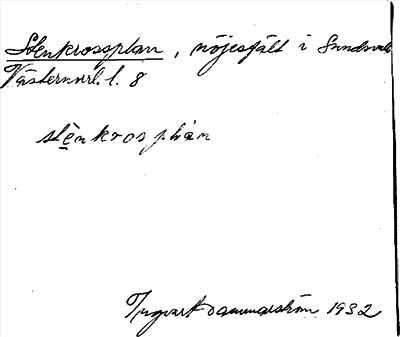 Stenkrossplan, nöjesfält i Sundsvall
Västernorrl. l. 8
stènkrosplàn
Ingvar Dammarström 1932